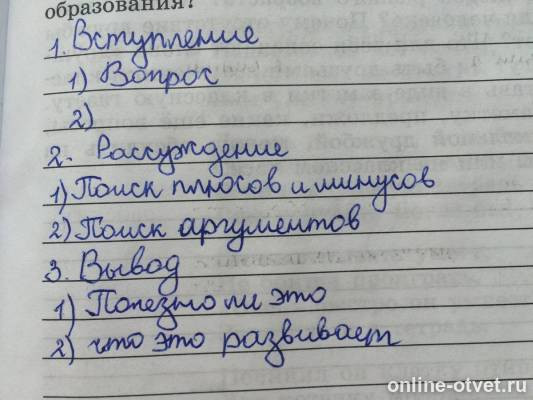 образования?
1. Вступление
1) Вопрос
2)
2. Рассуждение
1) Поиск плюсов и минусов
2) Поиск аргументов
3. Вывод
1) Полезно ли это
2) что это развивает
online-otvet.ru